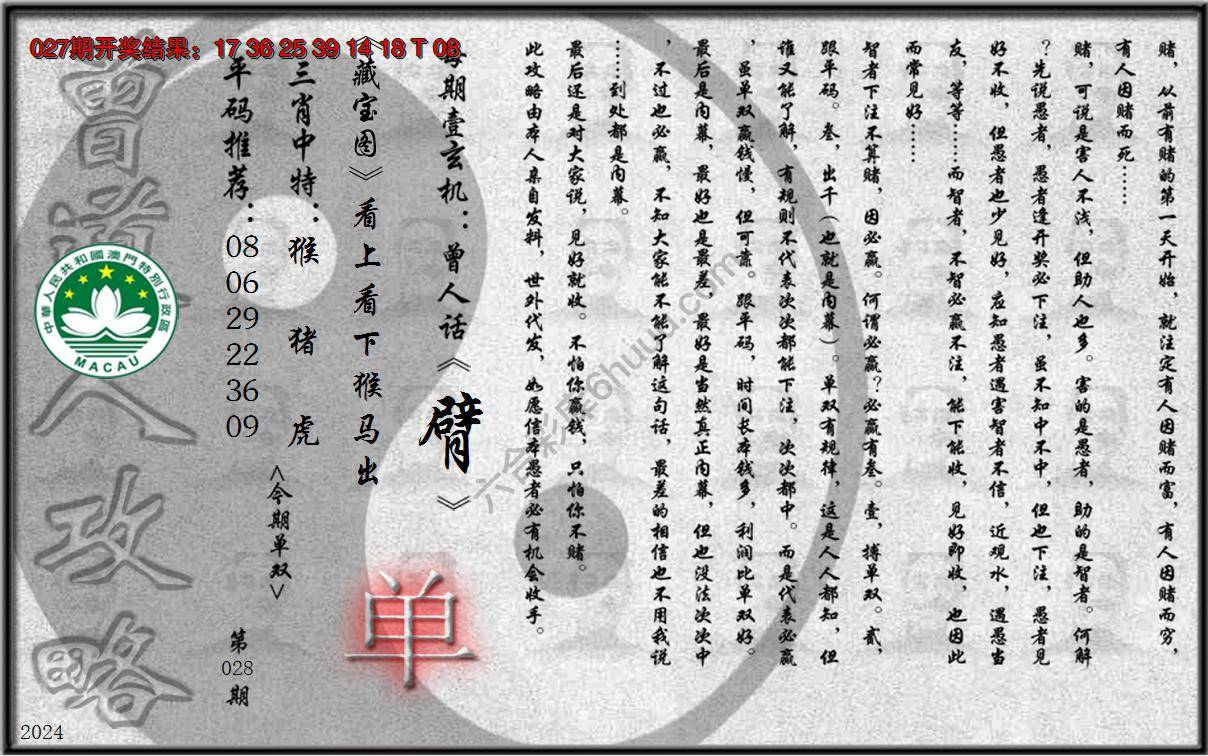 027期开奖结果：17 36 25 39 14 18 T 08
赌，从前有赌的第一天开始，就注定有人因赌而富，有人因赌而穷，
有人因赌而死……
赌，可说是害人不浅，但助人也多。害的是愚者，助的是智者。何解
？先说愚者，愚者逢开奖必下注，虽不知中不中，但也下注，愚者见
好不收，但愚者也少见好，应知愚者遇害智者不信，近观水，遇愚当
友，等等……而智者，不智必赢不注，能下能收，见好即收，也因此
而常见好……
智者下注不算赌，因必赢。何谓必赢？必赢有叁。壹，搏单双。贰，
跟平码。叁，出千（也就是内幕）。单双有规律，这是人人都知，但
谁又能了解，有规则不代表次次都能下注，次次都中。而是代表必赢
，虽单双赢钱慢，但可靠。跟平码，时间长本钱多，利润比单双好。
最后是内幕，最好也是最差，最好是当然真正内幕，但也没法次次中
，不过也必赢，不知大家能不能了解这句话，最差的相信也不用我说
……到处都是内幕。
最后还是对大家说，见好就收。不怕你赢钱，只怕你不赌。
此攻略由本人亲自发料，世外代发，如愿信本愚者必有机会收手。
每期壹玄机：曾人话《臂》
《藏宝图》看上看下猴马出
单
三肖中特：猴 猪 虎
<今期单双>
平码推荐：08 06 29 22 36 09
第028期
曾道人攻略
中華人民共和國澳門特別行政區
MACAU
2024